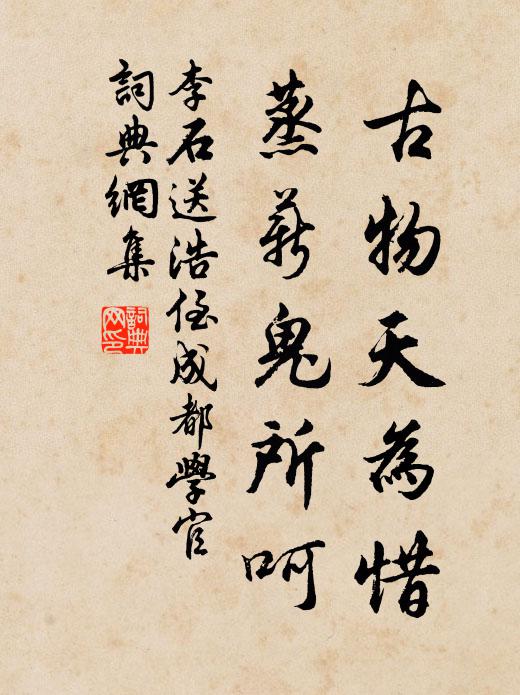 古物天為惜
蒸薪鬼所呵
李石送浩侄成都學官
詞典網集
詞典網印